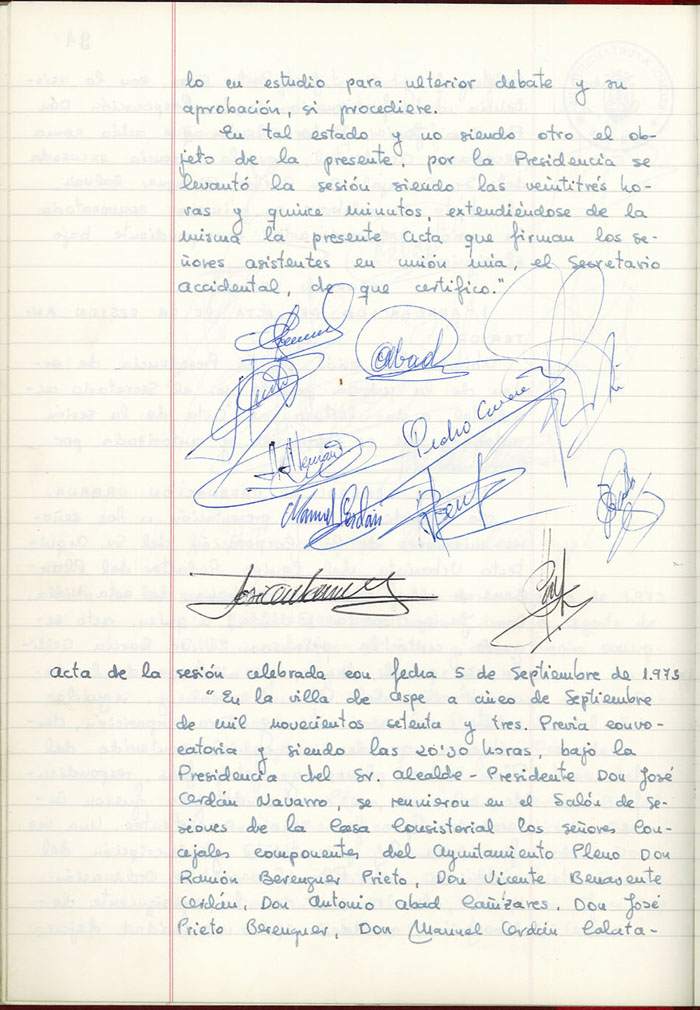 lo en estudio para ulterior debate y su
aprobación, si procediere.
En tal estado y no siendo otro el ob-
jeto de la presente, por la Presidencia se
levantó la sesión siendo las veintitrés ho-
ras y quince minutos, extendiéndose de la
misma la presente acta que firman los se-
ñores asistentes en unión mía, el Secretario
accidental, de que certifico."
Abad
Pedro
Manuel Cerdán
acta de la sesión celebrada con fecha 5 de Septiembre de 1.973
"En la villa de aspe a cinco de Septiembre
de mil novecientos setenta y tres. Previa convo-
catoria y siendo las 20'30 horas, bajo la
Presidencia del Sr. alcalde-Presidente Don José
Cerdán Navarro, se reunieron en el Salón de Se-
siones de la Casa Consistorial los señores Con-
cejales componentes del Ayuntamiento Pleno Don
Ramón Berenguer Prieto, Don Vicente Benavente
Cerdán, Don Antonio abad Cañizares, Don José
Prieto Berenguer, Don Manuel Cerdán Calata-